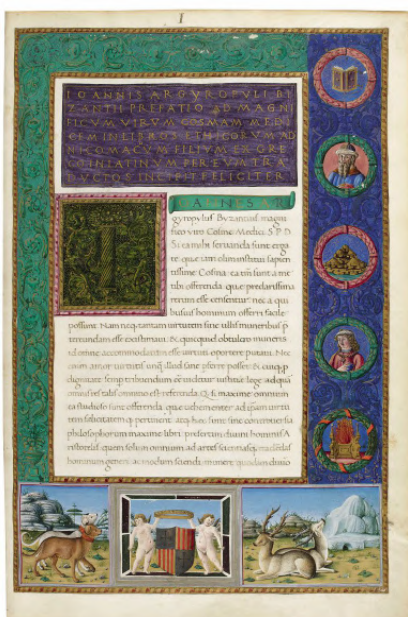 I
IOANNIS ARGYROPVLI BI
ZANTII PREFATIO AD MAGNI
FICVM VIRVM COSMAM MEDI
CEM IN LIBROS ETHICORVM AD
NICOMACVM FILIVM EX GRE
CO IN LATINVM PER EVM TRA
DVCTOS INCIPIT FELICITER
I
OANNES AR
gyropylus Byzantius magni
fico viro Cosme Medici S P D
Si earum servanda sunt erga
te que iam olim instituti sapien
tissime Cosma ea tibi sunt a me
tibi offerenda que preclarissima
rerum esse censentur nec a qui
busvis hominum offerri facile
possunt Nam neq tantam virtutem sine ullis muneribus
esse existimavi &
ad omne accommodatum esse virtuti oportere putavi Nec
enim amor virtutis unq illud sine posset &
dignitati semp tribuendum videatur lege ad quam
omnes tales omnino est referenda maxime omnium
sunt offerenda que vehementer ad ipsum virtu
tem felicitatem q pertinent atq hec sunt sine controversia
philosophorum maxime libri presertim divini hominis A
ristotelis quem solum omnium ad artes scientiasq tradendas
humanum generi ac modum sciendi munere quodam divino